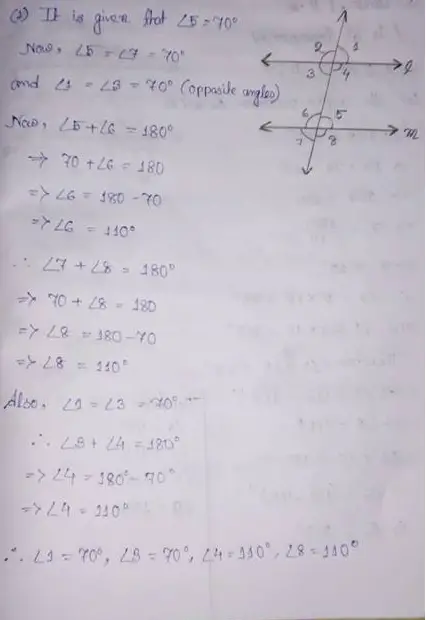 (2) It is given that ∠5 = 70°
Now, ∠5 = ∠7 = 70°
and ∠1 = ∠3 = 70° (opposite angles)
Now, ∠5 + ∠6 = 180°
⇒ 70 + ∠6 = 180
⇒ ∠6 = 180 - 70
⇒ ∠6 = 110°
∴ ∠7 + ∠8 = 180°
⇒ 70 + ∠8 = 180
⇒ ∠8 = 180 - 70
⇒ ∠8 = 110°
Also, ∠1 = ∠3 = 70°
∴ ∠3 + ∠4 = 180°
⇒ ∠4 = 180° - 70°
⇒ ∠4 = 110°
∴ ∠1 = 70°, ∠3 = 70°, ∠4 = 110°, ∠8 = 110°
2 1
3 4 l
6 5
7 8 m